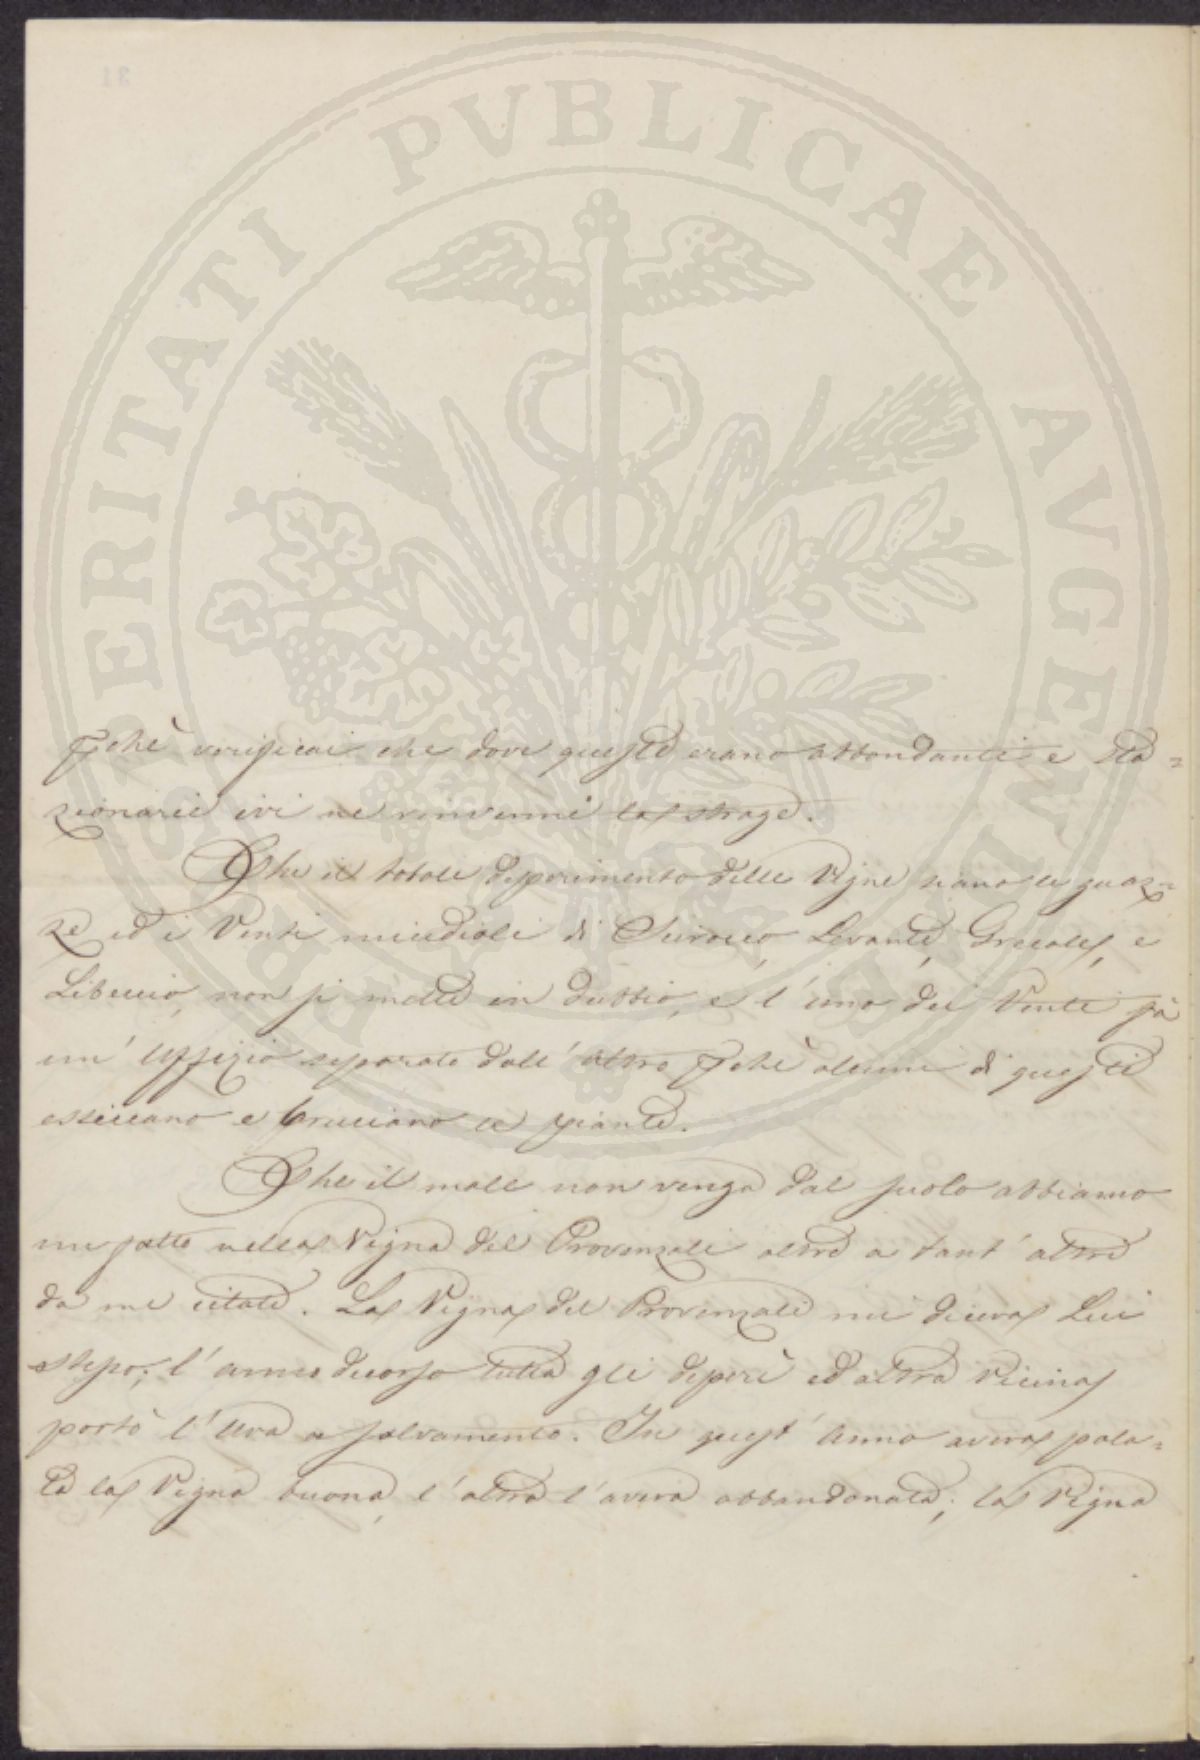 PROSPERITATI PVBLICAE AVGENDAE
pchè verificai che dove queste erano abbondanti e sta=
zionarie ivi ne rinvenni la strage.
Che il totale deperimento delle Vigne siano le guaz=
ze ed i Venti micidiali di Scirocco, Levante, Grecale, e
Libeccio, non si mette in dubbio, e l'uno dei Venti fà
un' Uffizio separato dall'altro pchè alcuni di questi
essiccano e bruciano le piante.
Che il male non venga dal suolo abbiamo
un fatto nella Vigna del Provenzale oltre a tant'altre
da me citate. La Vigna del Provenzale mi diceva Lui
stesso; l'anno decorso tutta gli deperì ed altra vicina
portò l'Uva a salvamento. In quest'anno aveva pola=
ta la Vigna buona, l'altra l'aveva abbandonata; la Vigna